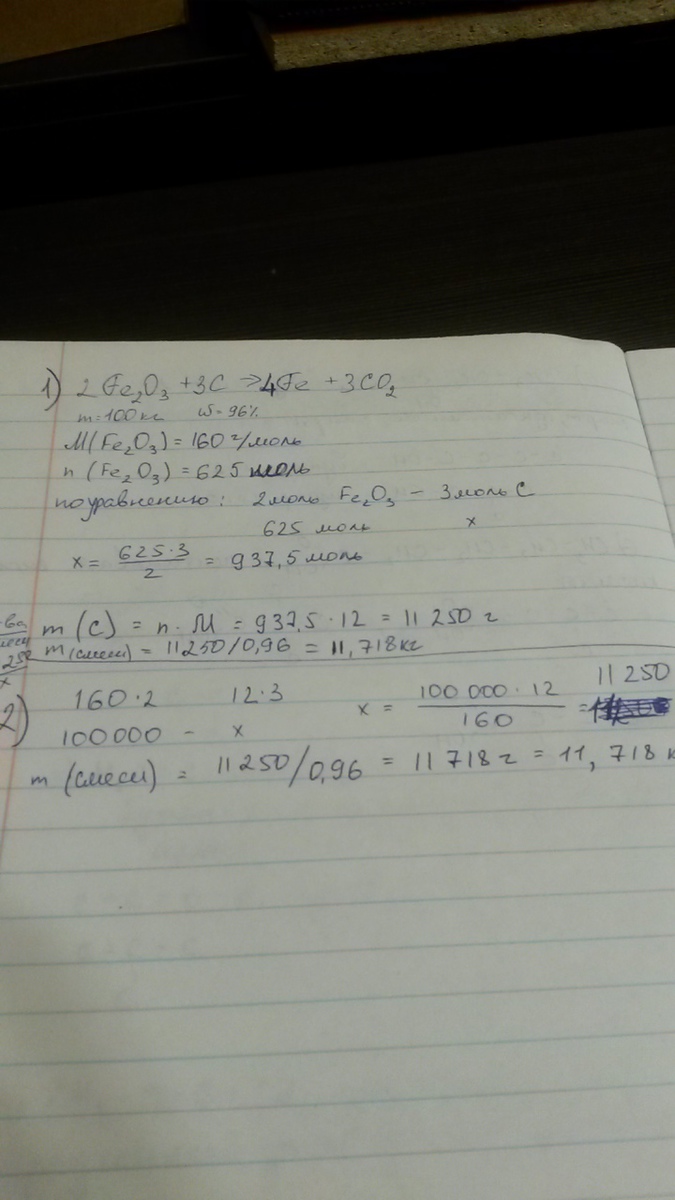 1) 2Fe₂O₃ + 3C → 4Fe + 3CO₂
m = 100 кг ω = 96%
M(Fe₂O₃) = 160 г/моль
n (Fe₂O₃) = 625 моль
по уравнению: 2 моль Fe₂O₃ – 3 моль C
625 моль x
x = 625·3/2 = 937,5 моль
m (C) = n · M = 937,5 · 12 = 11 250 г
m (смеси) = 11250/0,96 = 11,718 кг
2) 160·2 12·3 x = 100 000 · 12/160 = 11 250
100000 – x
m (смеси) = 11 250/0,96 = 11 718 г = 11, 718 к